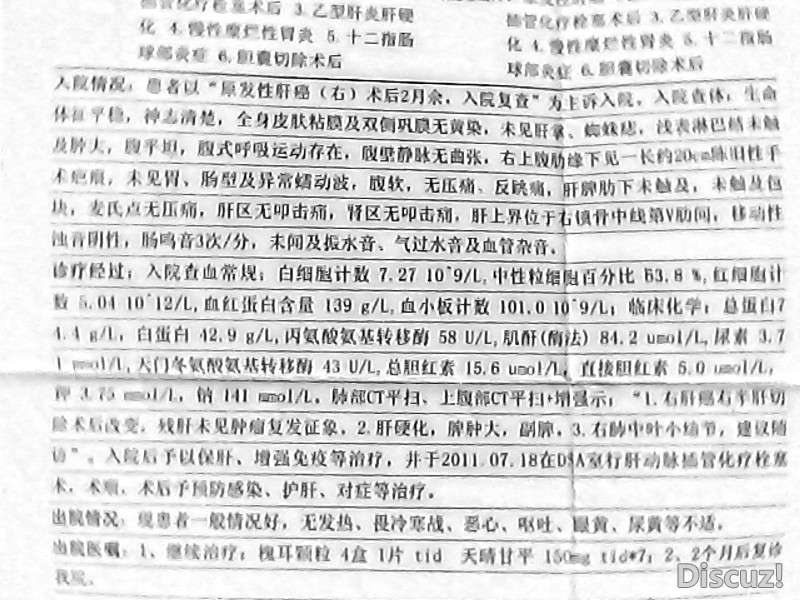 插管化疗栓塞术后 3.乙型肝炎肝硬 插管化疗栓塞术后 3.乙型肝炎肝硬
化 4.慢性糜烂性胃炎 5.十二指肠 化 4.慢性糜烂性胃炎 5.十二指肠
球部炎症 6.胆囊切除术后 球部炎症 6.胆囊切除术后
入院情况：患者以“原发性肝癌（右）术后2月余，入院复查”为主诉入院，入院查体：生命
体征平稳，神志清楚，全身皮肤粘膜及双侧巩膜无黄染，未见肝掌、蜘蛛痣，浅表淋巴结未触
及肿大，腹平坦，腹式呼吸运动存在，腹壁静脉无曲张，右上腹肋缘下见一长约20cm陈旧性手
术疤痕，未见胃、肠型及异常蠕动波，腹软，无压痛、反跳痛，肝脾肋下未触及，未触及包
块，麦氏点无压痛，肝区无叩击痛，肾区无叩击痛，肝上界位于右锁骨中线第V肋间，移动性
浊音阴性，肠鸣音3次/分，未闻及振水音、气过水音及血管杂音。
诊疗经过：入院查血常规：白细胞计数 7.27 10^9/L,中性粒细胞百分比 63.8 %,红细胞计
数 5.04 10^12/L,血红蛋白含量 139 g/L,血小板计数 101.0 10^9/L；临床化学：总蛋白7
4.4 g/L，白蛋白 42.9 g/L,丙氨酸氨基转移酶 58 U/L,肌酐(酶法) 84.2 umol/L,尿素 3.7
1 mmol/L,天门冬氨酸氨基转移酶 43 U/L,总胆红素 15.6 umol/L，直接胆红素 5.0 umol/L，
钾 3.75 mmol/L，钠 141 mmol/L，肺部CT平扫、上腹部CT平扫+增强示：“1.右肝癌右半肝切
除术后改变，残肝未见肿瘤复发征象，2.肝硬化，脾肿大，副脾，3.右肺中叶小结节，建议随
访”。入院后予以保肝、增强免疫等治疗，并于2011.07.18在DSA室行肝动脉插管化疗栓塞
术，术顺，术后予预防感染、护肝、对症等治疗。
出院情况：现患者一般情况好，无发热、畏冷寒战、恶心、呕吐、眼黄、尿黄等不适。
出院医嘱：1、继续治疗：槐耳颗粒 4盒 1片 tid 天晴甘平 150mg tid*7；2、2个月后复诊
我院。
Discuz!